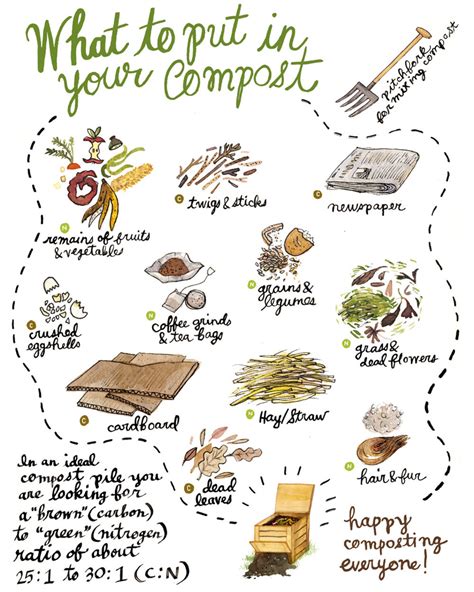 What to put in
your Compost
pitchfork
for mixing compost
N
remains of fruits
& vegetables
C
twigs & sticks
C
newspaper
C
crushed
eggshells
N
coffee grinds
& tea bags
N
grains &
legumes
N
grass &
dead flowers
C
cardboard
Hay/Straw
C
dead
leaves
N
hair & fur
In an ideal
compost pile you
are looking for
a "brown" (carbon)
to "green" (nitrogen)
ratio of about
25:1 to 30:1 (C:N)
happy
composting
everyone!